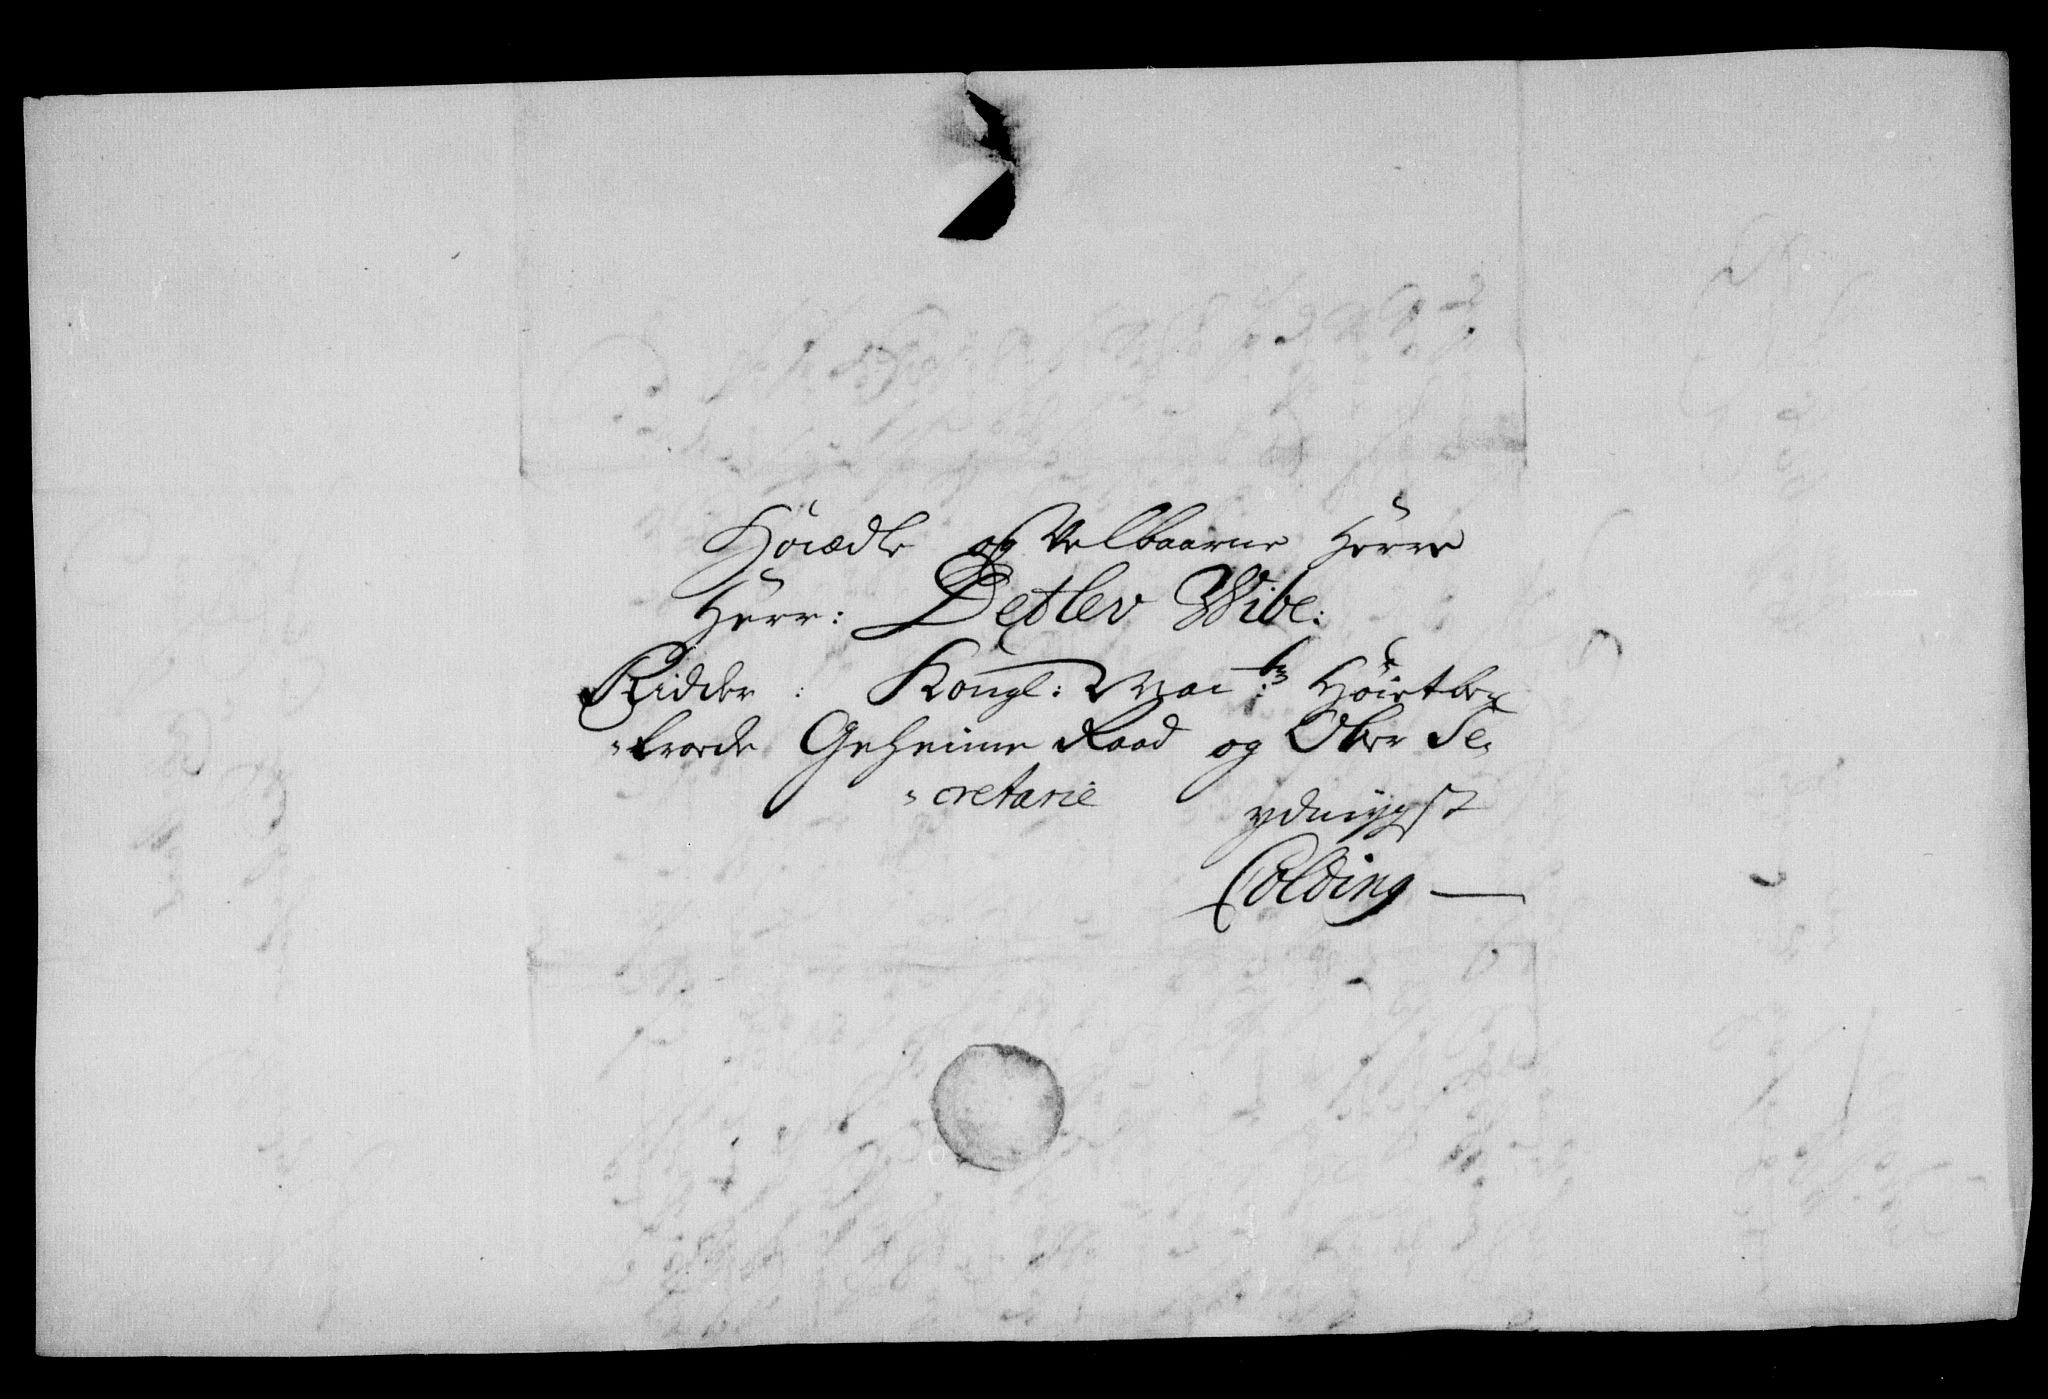 Höiædle og Velbaarne Herre
Herr: Detlev Wibe:
Ridder: Kongl: Mai:ts Höietbe-
"troede Geheime Raad og Ober Se-
"cretarie
ydmygst
Colding —